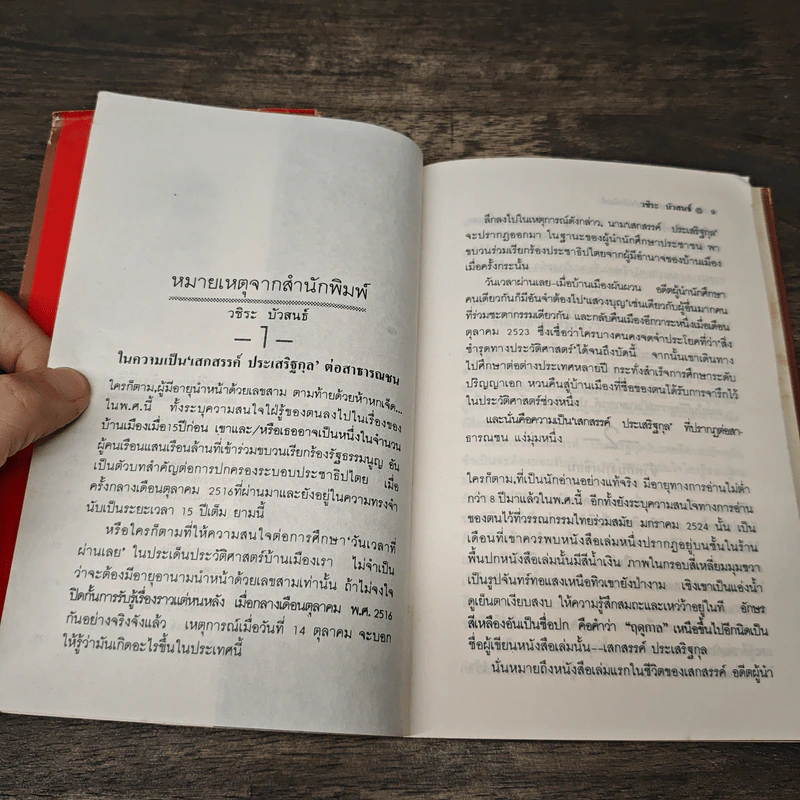 หมายเหตุจากสำนักพิมพ์
วชิระ บัวสนธ์
–1–
ในความเป็น'เสกสรรค์ ประเสริฐกุล' ต่อสาธารณชน
ใครก็ตาม,ผู้มีอายุนำหน้าด้วยเลขสาม ตามท้ายด้วยห้าหกเจ็ด...
ในพ.ศ.นี้ ทั้งระบุความสนใจใฝ่รู้ของตนลงไปในเรื่องของ
บ้านเมืองเมื่อ15ปีก่อน เขาและ/หรือเธออาจเป็นหนึ่งในจำนวน
ผู้คนเรือนแสนเรือนล้านที่เข้าร่วมขบวนเรียกร้องรัฐธรรมนูญ อัน
เป็นตัวบทสำคัญต่อการปกครองระบอบประชาธิปไตย เมื่อ
ครั้งกลางเดือนตุลาคม 2516ที่ผ่านมาและยังอยู่ในความทรงจำ
นับเป็นระยะเวลา 15 ปีเต็ม ยามนี้
หรือใครก็ตามที่ให้ความสนใจต่อการศึกษา'วันเวลาที่
ผ่านเลย' ในประเด็นประวัติศาสตร์บ้านเมืองเรา ไม่จำเป็น
ว่าจะต้องมีอายุอานามนำหน้าด้วยเลขสามเท่านั้น ถ้าไม่จงใจ
ปิดกั้นการรับรู้เรื่องราวแต่หนหลัง เมื่อกลางเดือนตุลาคม พ.ศ.2516
กันอย่างจริงจังแล้ว เหตุการณ์เมื่อวันที่ 14 ตุลาคม จะบอก
ให้รู้ว่ามันเกิดอะไรขึ้นในประเทศนี้
วชิระ บัวสนธ์ ๑
ลึกลงไปในเหตุการณ์ดังกล่าว, นาม'เสกสรรค์ ประเสริฐกุล'
จะปรากฏออกมา ในฐานะของผู้นำนักศึกษาประชาชน พา
ขบวนร่วมเรียกร้องประชาธิปไตยจากผู้มีอำนาจของบ้านเมือง
เมื่อครั้งกระนั้น
วันเวลาผ่านเลย-เมื่อบ้านเมืองผันผวน อดีตผู้นำนักศึกษา
คนเดียวกันก็มีอันจำต้องไป'แสวงบุญ'เช่นเดียวกับผู้อื่นมากคน
ที่ร่วมชะตากรรมเดียวกัน และกลับคืนเมืองอีกวาระหนึ่งเมื่อเดือน
ตุลาคม 2523 ซึ่งเชื่อว่าใครบางคนคงจดจำประโยคที่ว่า'สิ่ง
ชำรุดทางประวัติศาสตร์'ได้จนถึงบัดนี้ จากนั้นเขาเดินทาง
ไปศึกษาต่อต่างประเทศหลายปี กระทั่งสำเร็จการศึกษาระดับ
ปริญญาเอก หวนคืนสู่บ้านเมืองที่ชื่อของตนได้รับการจารึกไว้
ในประวัติศาสตร์ช่วงหนึ่ง
และนั่นคือความเป็น'เสกสรรค์ ประเสริฐกุล' ที่ปรากฏต่อสา-
ธารณชน แง่มุมหนึ่ง
ใครก็ตาม,ที่เป็นนักอ่านอย่างแท้จริง มีอายุทางการอ่านไม่ต่ำ
กว่า 8 ปีมาแล้วในพ.ศ.นี้ อีกทั้งยังระบุความสนใจทางการอ่าน
ของตนไว้ที่วรรณกรรมไทยร่วมสมัย มกราคม 2524 นั้น เป็น
เดือนที่เขาควรพบหนังสือเล่มหนึ่งปรากฏอยู่บนชั้นในร้าน
พื้นปกหนังสือเล่มนั้นมีสีน้ำเงิน ภาพในกรอบสี่เหลี่ยมมุมขวา
เป็นรูปจันทร์ทอแสงเหนือทิวเขายังป่างาม เชิงเขาเป็นแอ่งน้ำ
ดูเย็นตาเงียบสงบ ให้ความรู้สึกสมถะและเหว่ว้าอยู่ในที อักษร
สีเหลืองอันเป็นชื่อปก คือคำว่า "ฤดูกาล" เหนือขึ้นไปอีกนิดเป็น
ชื่อผู้เขียนหนังสือเล่มนั้น--เสกสรรค์ ประเสริฐกุล
นั่นหมายถึงหนังสือเล่มแรกในชีวิตของเสกสรรค์ อดีตผู้นำ